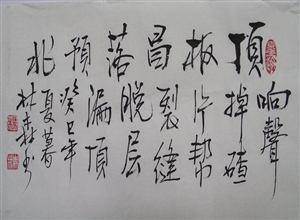 响聲
頂掉碴
板片帮
冒裂缝
落脱层
預漏頂
兆
癸巳年
夏暮
林森书